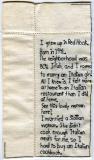 I grew up in Red Hook.
Born in 1941.
The neighborhood was
80% Irish and I come
to marry an Italian girl.
All I knew is, I felt more
at home in an Italian
restaurant than I did
at home.
See this lovely woman
here?
I married a Sicilian
woman. She didn't
cook enough Italian
meals for me so I
had to buy an Italian
cookbook.